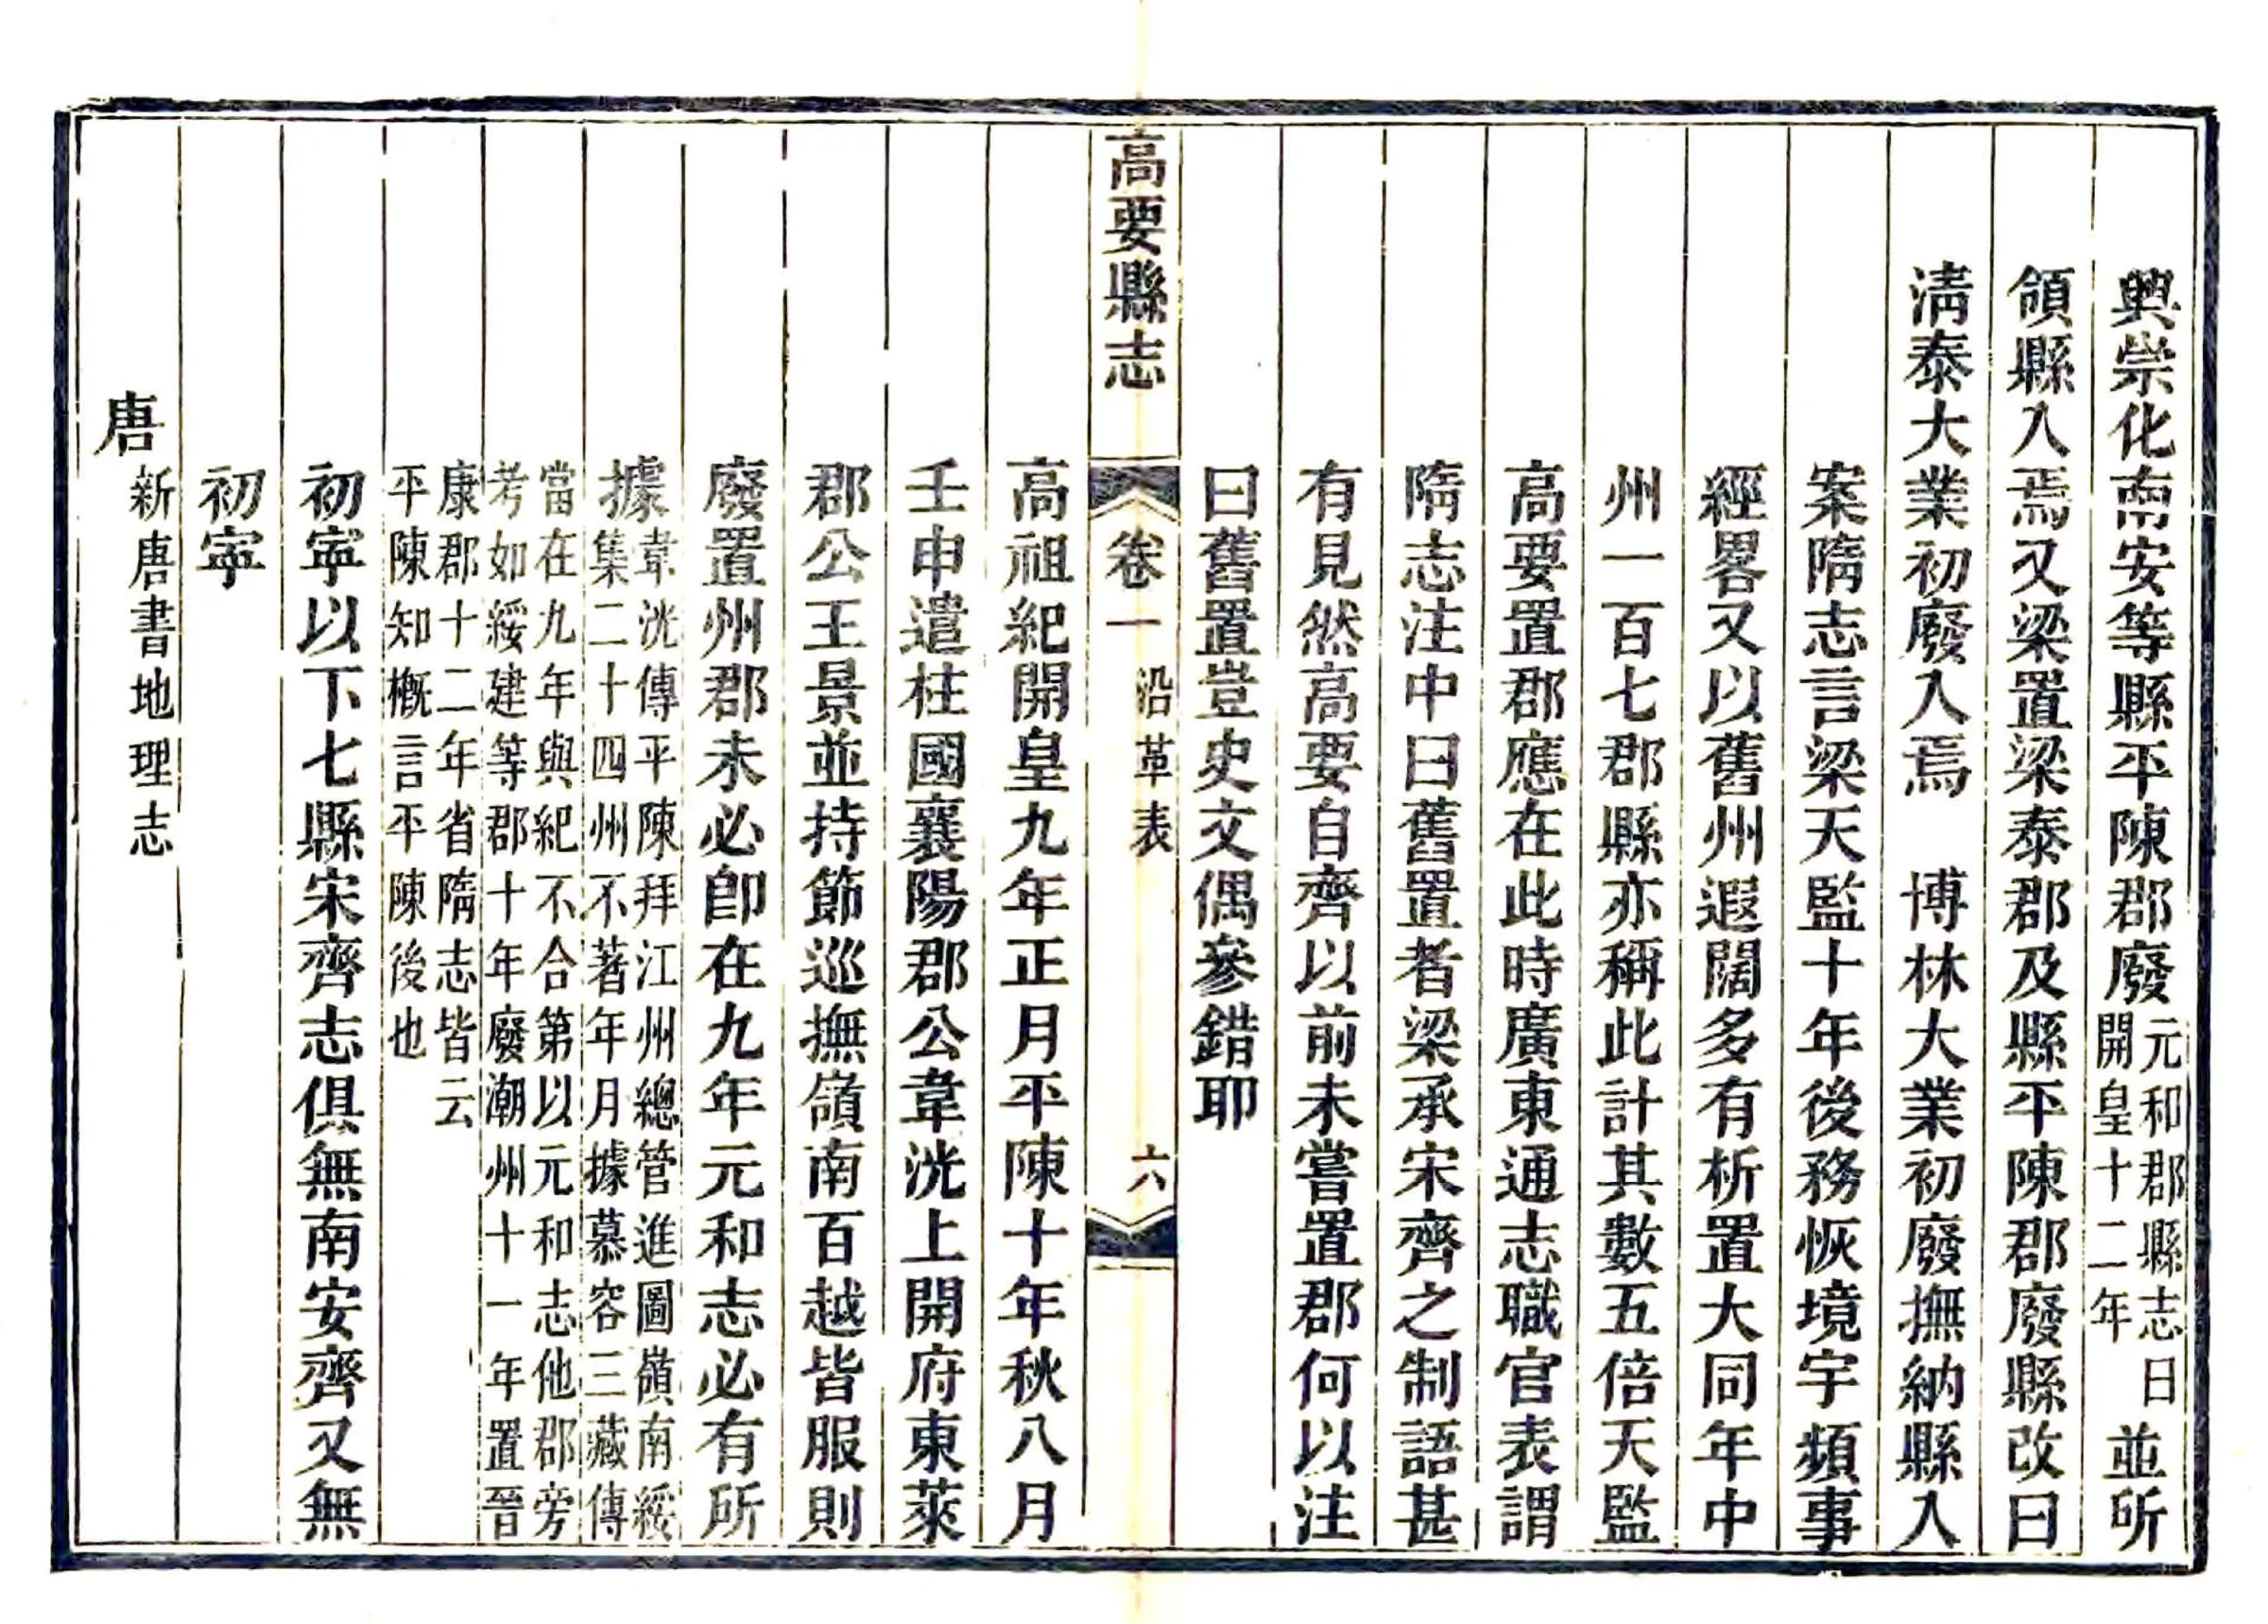 興崇化南安等縣平陳郡廢元和郡縣志曰開皇十二年並所
領縣入焉又梁置梁泰郡及縣平陳郡廢縣改曰
清泰大業初廢入焉　博林大業初廢撫納縣入
案隋志言梁天監十年後務恢境宇頻事
經畧又以舊州遐闊多有析置大同年中
州一百七郡縣亦稱此計其數五倍天監
高要置郡應在此時廣東通志職官表謂
隋志注中曰舊置者梁承宋齊之制語甚
有見然高要自齊以前未嘗置郡何以注
曰舊置豈史文偶參錯耶
高要縣志　卷一　沿革表　六
高祖紀開皇九年正月平陳十年秋八月
壬申遣柱國襄陽郡公韋洸上開府東萊
郡公王景並持節巡撫嶺南百越皆服則
廢置州郡未必卽在九年元和志必有所
據韋洸傳平陳拜江州總管進圖嶺南綏集二十四州不著年月據慕容三藏傳
當在九年與紀不合第以元和志他郡旁考如綏建等郡十年廢潮州十一年置晉
康郡十二年省隋志皆云平陳知概言平陳後也
初寧以下七縣宋齊志俱無南安齊又無
初寧
唐新唐書地理志